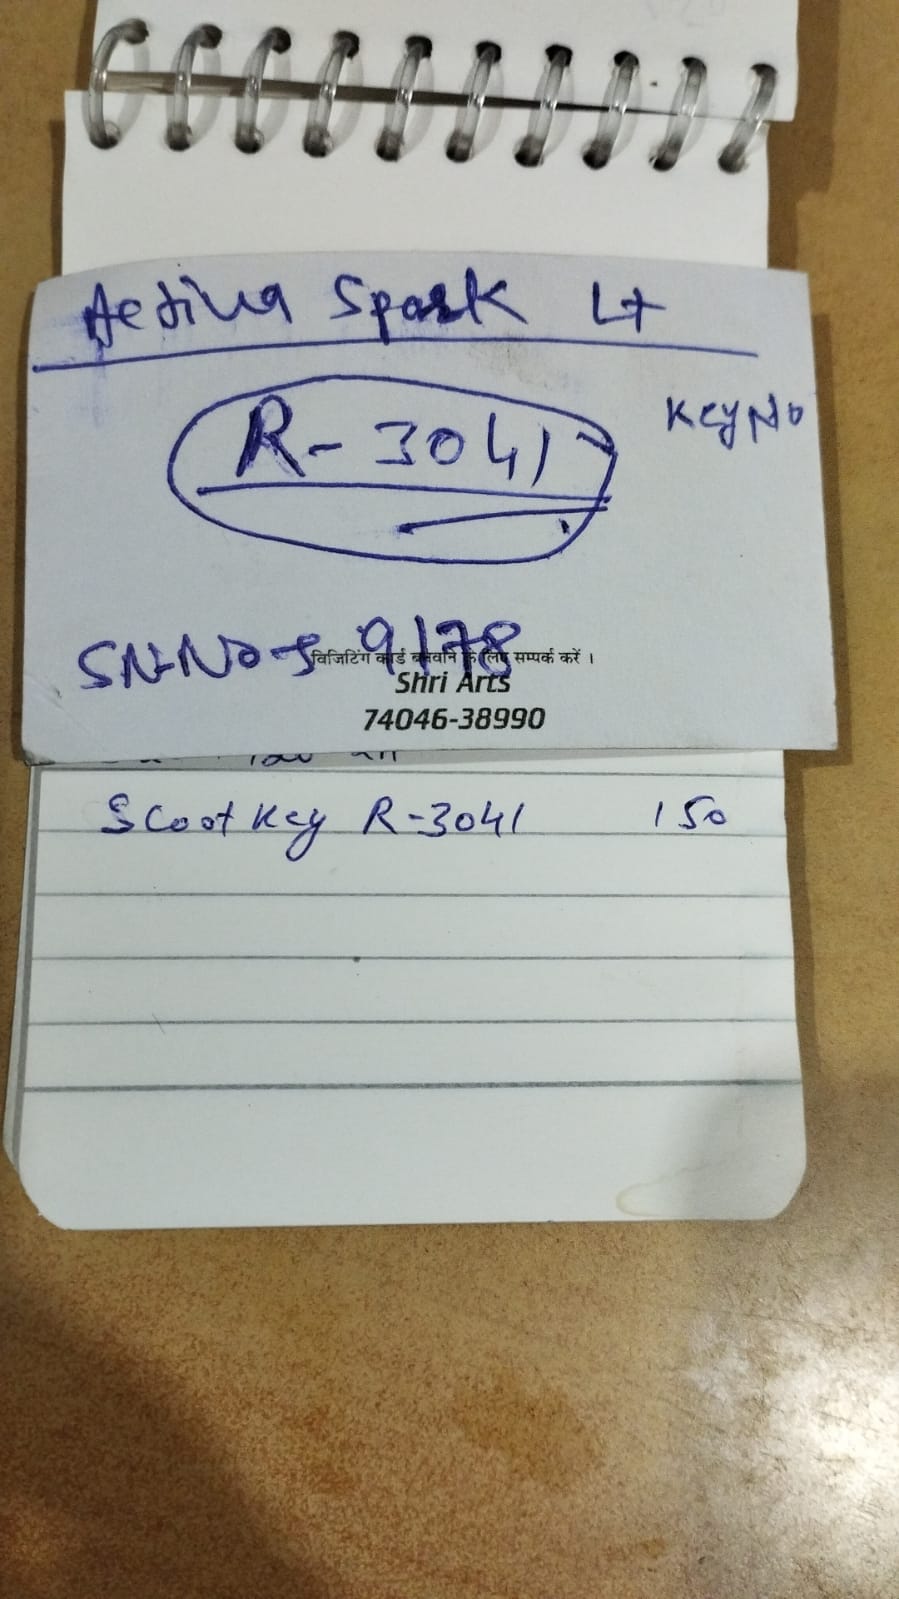 Activa Spark Lt
Key No
R-3041
SN-No-5 9178
विजिटिंग कार्ड बनवाने के लिए सम्पर्क करें ।
Shri Arts
74046-38990
Scoot Key R-3041 150